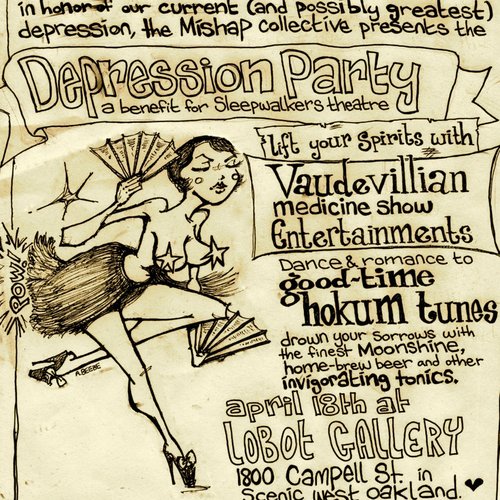 in honor of our current (and possibly greatest)
depression, the Mishap collective presents the
Depression Party
a benefit for Sleepwalkers theatre
lift your spirits with
Vaudevillian
medicine show
Entertainments
Dance & romance to
good-time
hokum tunes
drown your sorrows with
the finest Moonshine,
home-brew beer and other
invigorating tonics.
POW!
A. BEEBE
april 18th at
LOBOT GALLERY
1800 Campell St. in
Scenic West Oakland